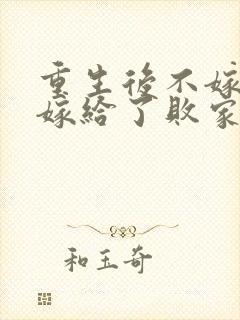 重生後不嫁
嫁給了敗家
和玉奇